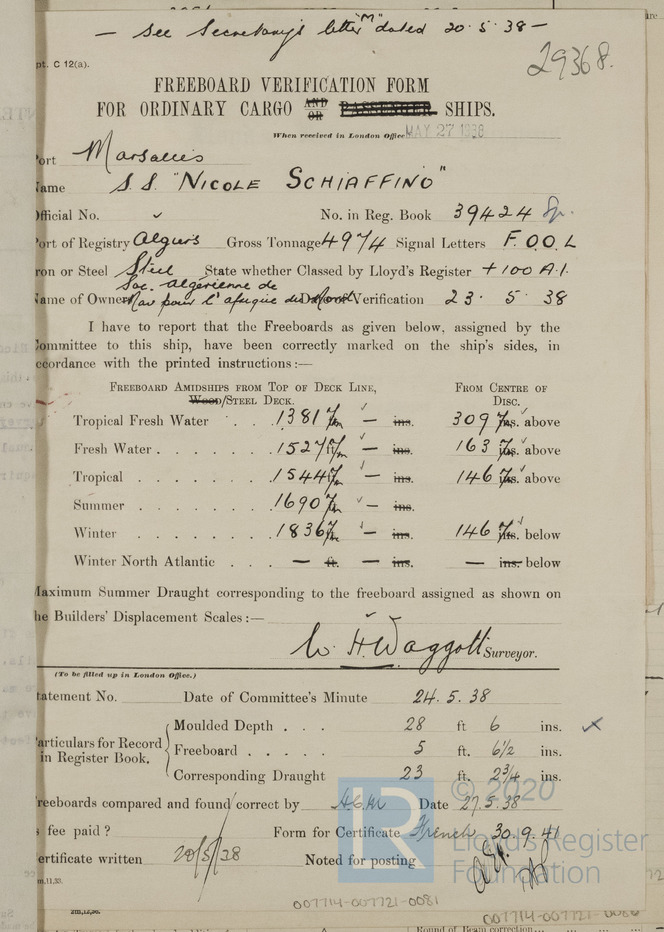 — See Secretary's letter "M" dated 20.5.38 —
29368.
pt. C 12(a).
FREEBOARD VERIFICATION FORM
FOR ORDINARY CARGO AND OR PASSENGER SHIPS.
When received in London Office MAY 27 1938
ort Marsailles
ame S.S. "NICOLE SCHIAFFINO"
Official No. No. in Reg. Book 39424
ort of Registry Algiers Gross Tonnage 4974 Signal Letters F.O.O.L
ron or Steel Steel State whether Classed by Lloyd's Register +100 A.1.
Soc. Algérienne de
ame of Owner Nav pour l'afrique du Nord Verification 23. 5 38
I have to report that the Freeboards as given below, assigned by the
Committee to this ship, have been correctly marked on the ship's sides, in
ccordance with the printed instructions:—
FREEBOARD AMIDSHIPS FROM TOP OF DECK LINE, FROM CENTRE OF
Wood/STEEL DECK. DISC.
Tropical Fresh Water . . 1381 m/m — ins. 309 m/m ins. above
Fresh Water . . . . . . 1527 m/m — ins. 163 m/m ins. above
Tropical . . . . . . 1544 m/m — ins. 146 m/m ins. above
Summer . . . . . . 1690 m/m — ins.
Winter . . . . . . 1836 m/m — ins. 146 m/m ins. below
Winter North Atlantic . . . — ft. — ins. — ins. below
Maximum Summer Draught corresponding to the freeboard assigned as shown on
he Builders' Displacement Scales:—
W. H. Waggott Surveyor.
(To be filled up in London Office.)
tatement No. Date of Committee's Minute 24.5.38
articulars for Record in Register Book.
Moulded Depth . . . 28 ft 6 ins.
Freeboard . . . . . 5 ft. 6½ ins.
Corresponding Draught 23 ft. 2¾ ins.
reeboards compared and found correct by Date 27.5.38
s fee paid ? Form for Certificate French 30.9.41
ertificate written 20/5/38 Noted for posting
m,11,33.
2m,12,36.
LR
© 2020
Lloyd's Register
Foundation
007714-007721-0081
007714-007721-0080
Round of Beam correction